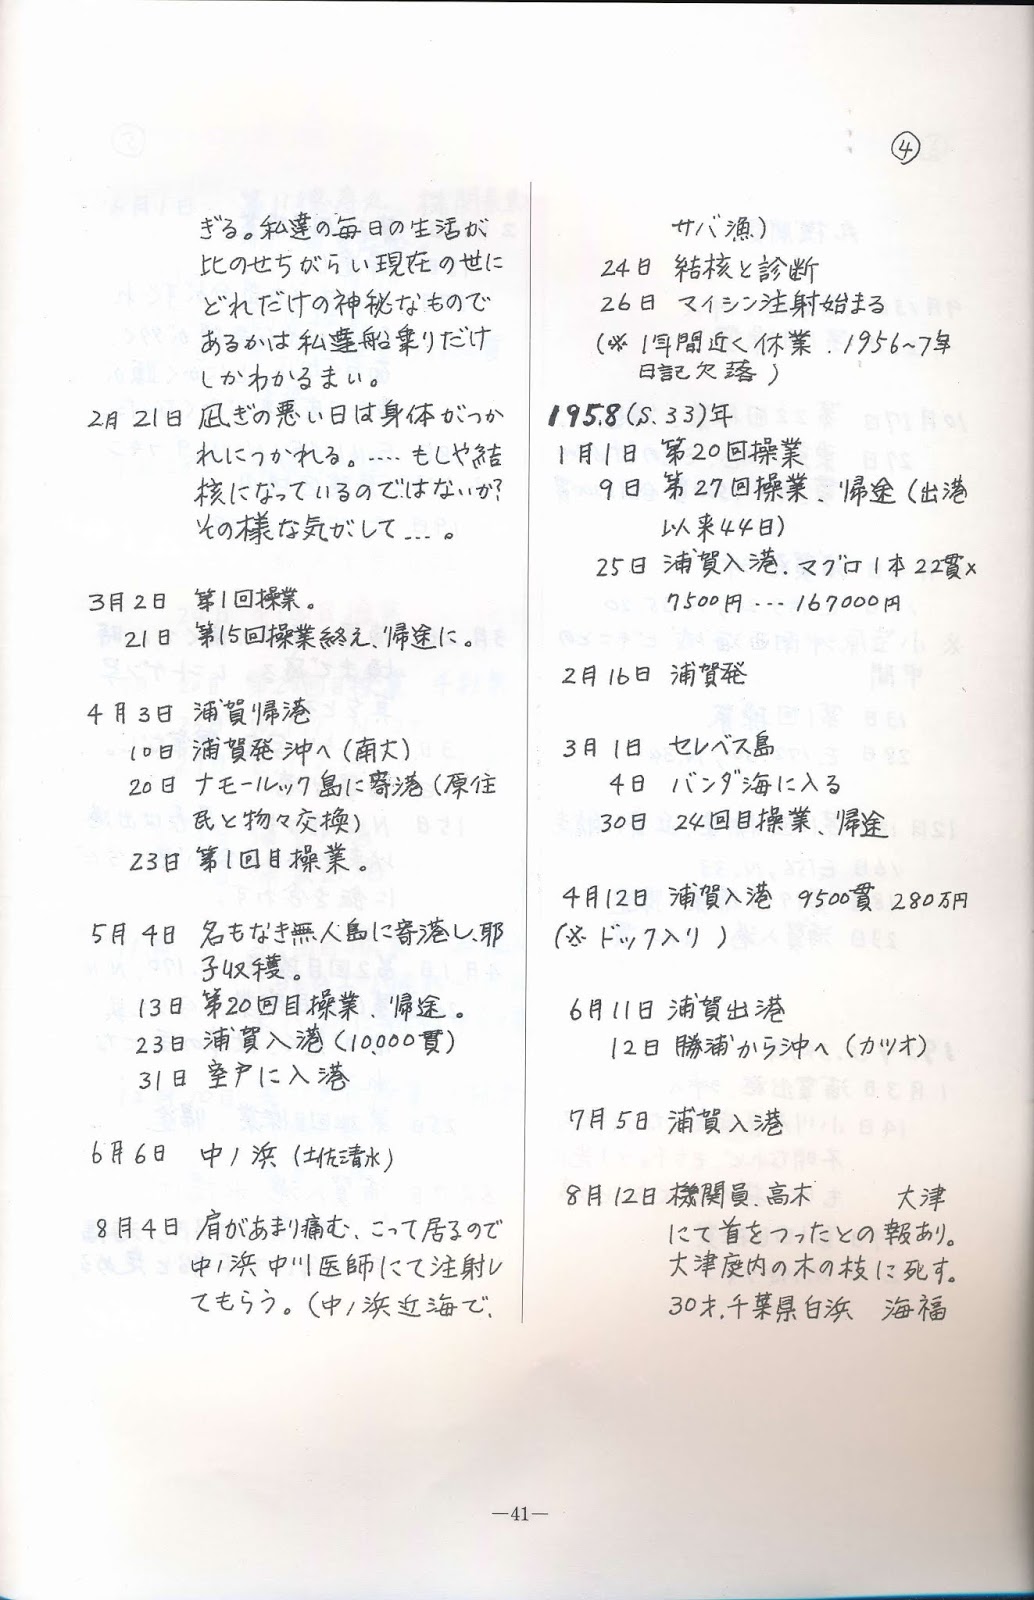 ④
ぎる。私達の毎日の生活が
比のせちがらい現在の世に
どれだけの神秘なもので
あるかは私達船乗りだけ
しかわかるまい。
2月21日 凪ぎの悪い日は身体がつか
れにつかれる。…. もしや結
核になっているのではないか?
その様な気がして…。
3月2日 第1回操業。
21日 第15回操業終え、帰途に。
4月3日 浦賀帰港
10日 浦賀発沖へ(南大)
20日 ナモールック島に寄港(原住
民と物々交換)
23日 第1回目操業。
5月4日 名もなき無人島に寄港し、耶
子収穫。
13日 第20回目操業、帰途。
23日 浦賀入港(10,000貫)
31日 室戸に入港
6月6日 中ノ浜(土佐清水)
8月4日 肩があまり痛む、こって居るので
中ノ浜 中川医師にて注射し
てもらう。(中ノ浜近海で、
サバ漁)
24日 結核と診断
26日 マイシン注射始まる
(※ 1年間近く休業. 1956~7年
日記欠落)
1958(S.33)年
1月1日 第20回操業
9日 第27回操業、帰途(出港
以来44日)
25日 浦賀入港. マグロ1本22貫×
7500円…167000円
2月16日 浦賀発
3月1日 セレベス島
4日 バンダ海に入る
30日 24回目操業、帰途
4月12日 浦賀入港 9500貫 280万円
(※ ドック入り)
6月11日 浦賀出港
12日 勝浦から沖へ(カツオ)
7月5日 浦賀入港
8月12日 機関員、高木 大津
にて首をつったとの報あり。
大津庭内の木の枝に死す。
30才. 千葉県白浜 海福
—41—